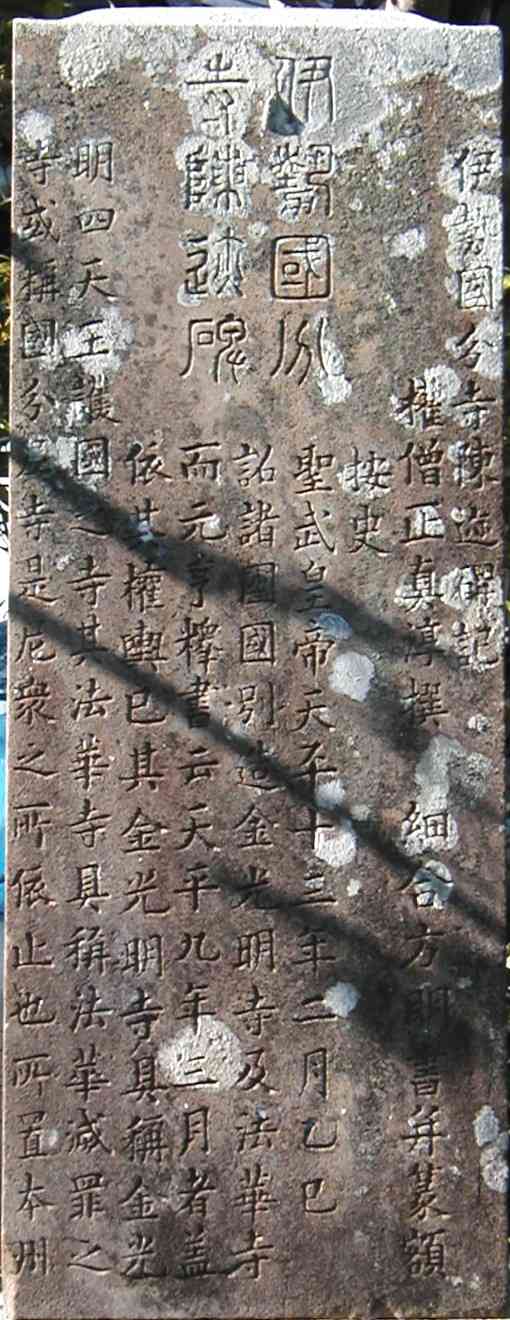 伊勢國分
寺陳迹碑
伊勢國分寺陳迹碑記
權僧正真淳撰 細合方明書并篆額
按史
聖武皇帝天平十三年二月乙巳
詔諸國國別造金光明寺及法華寺
而元亨釋書云天平九年三月者盖
依其權輿已其金光明寺具稱金光
明四天王護國之寺其法華寺具稱法華滅罪之
寺或稱國分尼寺是尼衆之所依止也所置本州